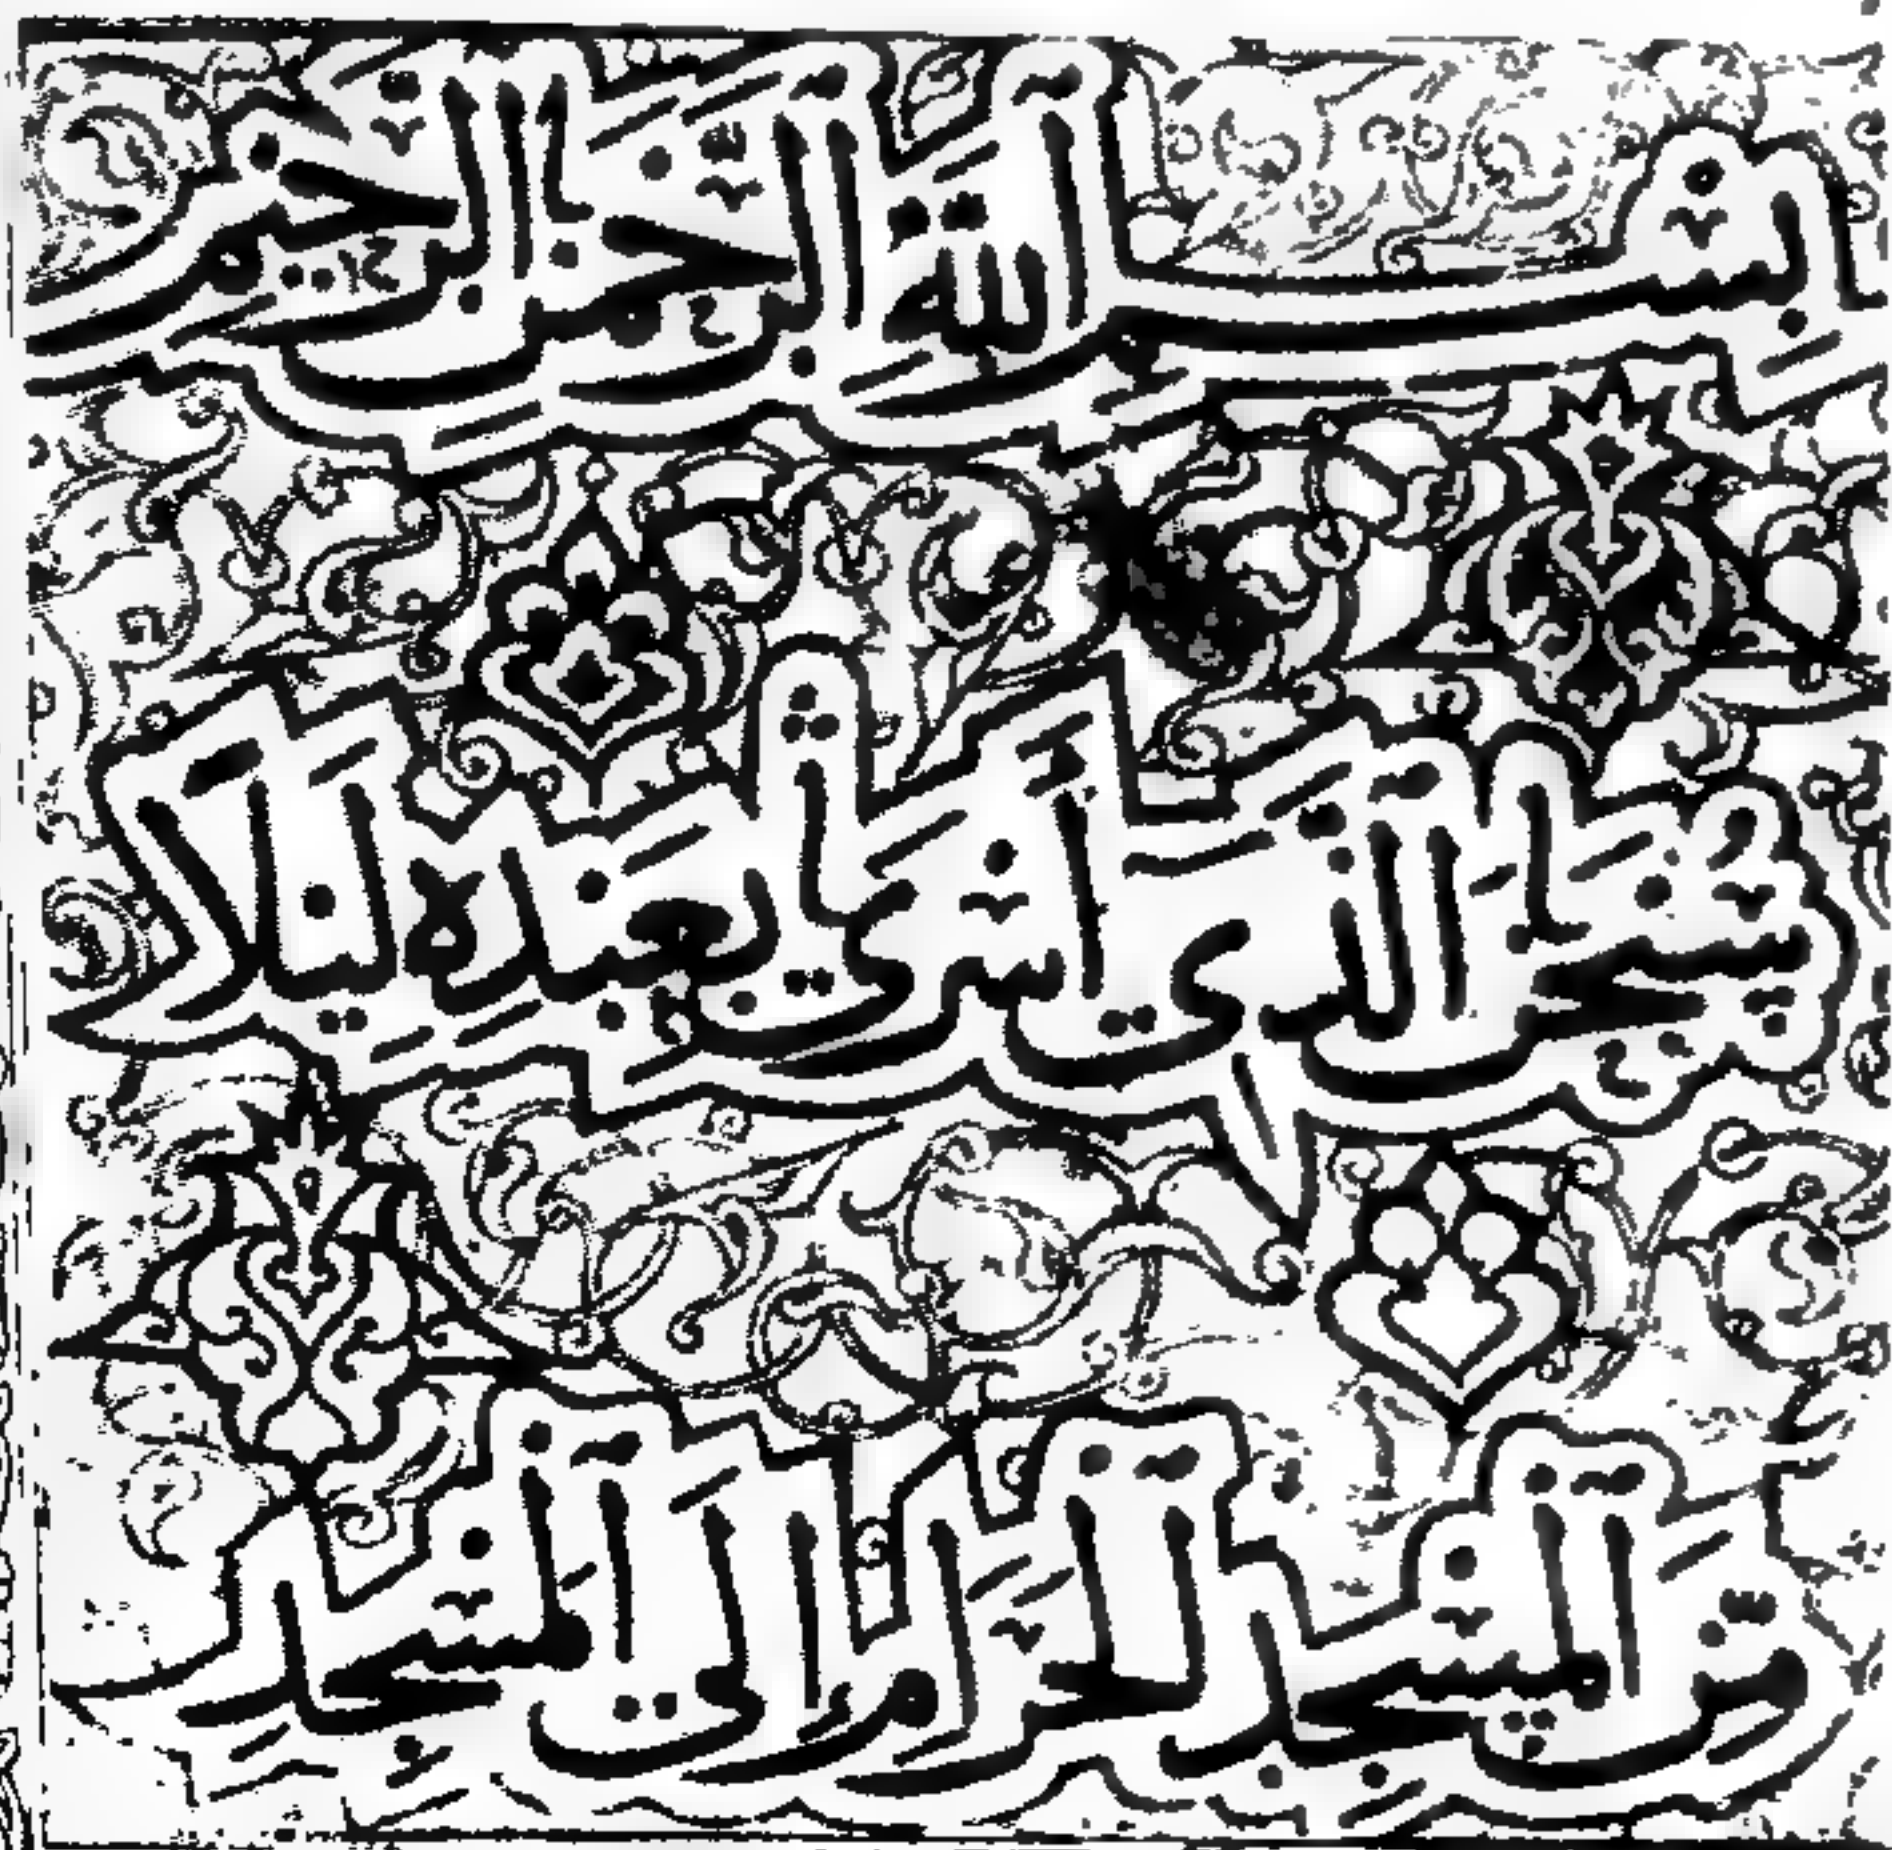 بِسْمِ اللَّهِ الرَّحْمَٰنِ الرَّحِيمِ
سُبْحَانَ الَّذِي أَسْرَىٰ بِعَبْدِهِ لَيْلًا
مِنَ الْمَسْجِدِ الْحَرَامِ إِلَى الْمَسْجِدِ